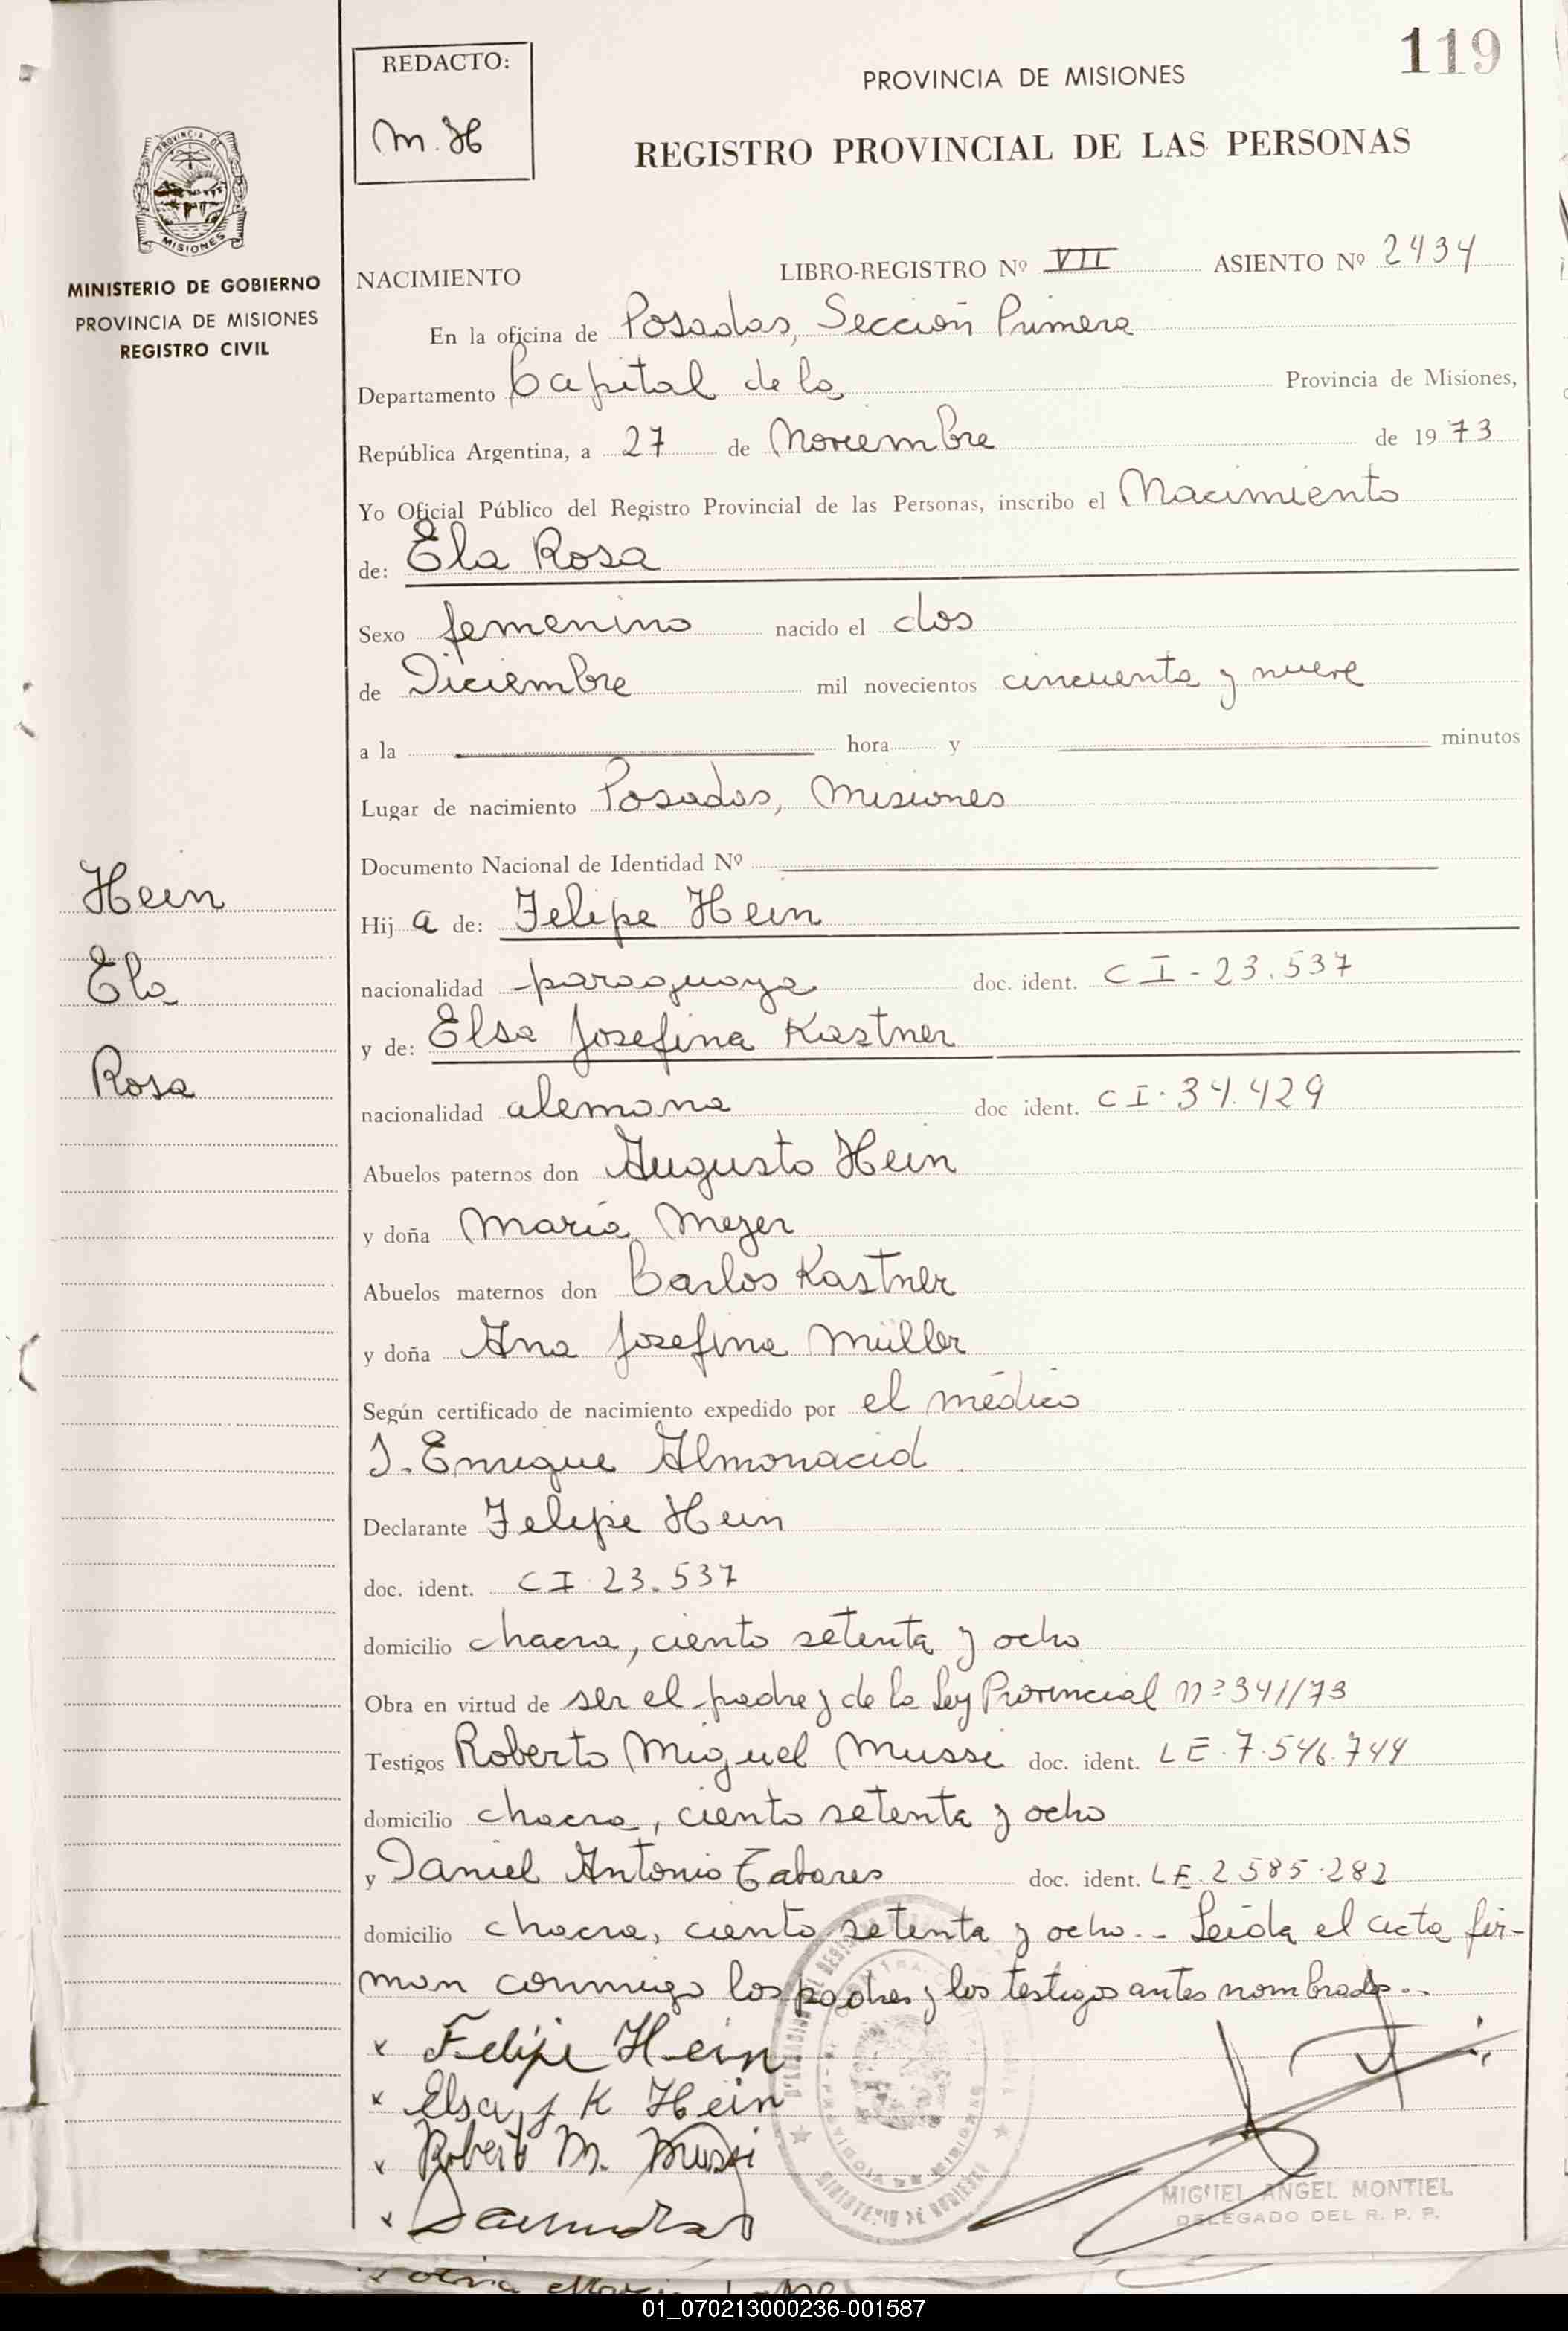 119
REDACTO:
M. H
PROVINCIA DE MISIONES
REGISTRO PROVINCIAL DE LAS PERSONAS
PROVINCIA DE
MISIONES
MINISTERIO DE GOBIERNO
PROVINCIA DE MISIONES
REGISTRO CIVIL
NACIMIENTO LIBRO-REGISTRO Nº VII ASIENTO Nº 2434
En la oficina de Posadas, Sección Primera
Departamento Capital de la Provincia de Misiones,
República Argentina, a 27 de Noviembre de 1973
Yo Oficial Público del Registro Provincial de las Personas, inscribo el Nacimiento
de: Ela Rosa
Sexo femenino nacido el dos
de Diciembre mil novecientos cincuenta y nueve
a la hora y minutos
Lugar de nacimiento Posadas, Misiones
Documento Nacional de Identidad Nº
Hein
Hij a de: Felipe Hein
Ela
nacionalidad paraguaya doc. ident. CI-23.537
y de: Elsa Josefina Kastner
Rosa
nacionalidad alemana doc ident. CI.34.429
Abuelos paternos don Augusto Hein
y doña María Mezer
Abuelos maternos don Carlos Kastner
y doña Ana Josefina Müller
Según certificado de nacimiento expedido por el médico
J. Enrique Almonacid
Declarante Felipe Hein
doc. ident. CI 23.537
domicilio chacra, ciento setenta y ocho
Obra en virtud de ser el padre y de la Ley Provincial nº 341/73
Testigos Roberto Miguel Mussi doc. ident. LE.7.546.744
domicilio chacra, ciento setenta y ocho
y Daniel Antonio Tabares doc. ident. LE.2585.282
domicilio chacra, ciento setenta y ocho.- Leída el acta fir-
man conmigo los padres y los testigos antes nombrados.-
x Felipe Hein
x Elsa J K Hein
x Roberto M. Mussi
x
MIGUEL ANGEL MONTIEL
DELEGADO DEL R. P. P.
01_070213000236-001587